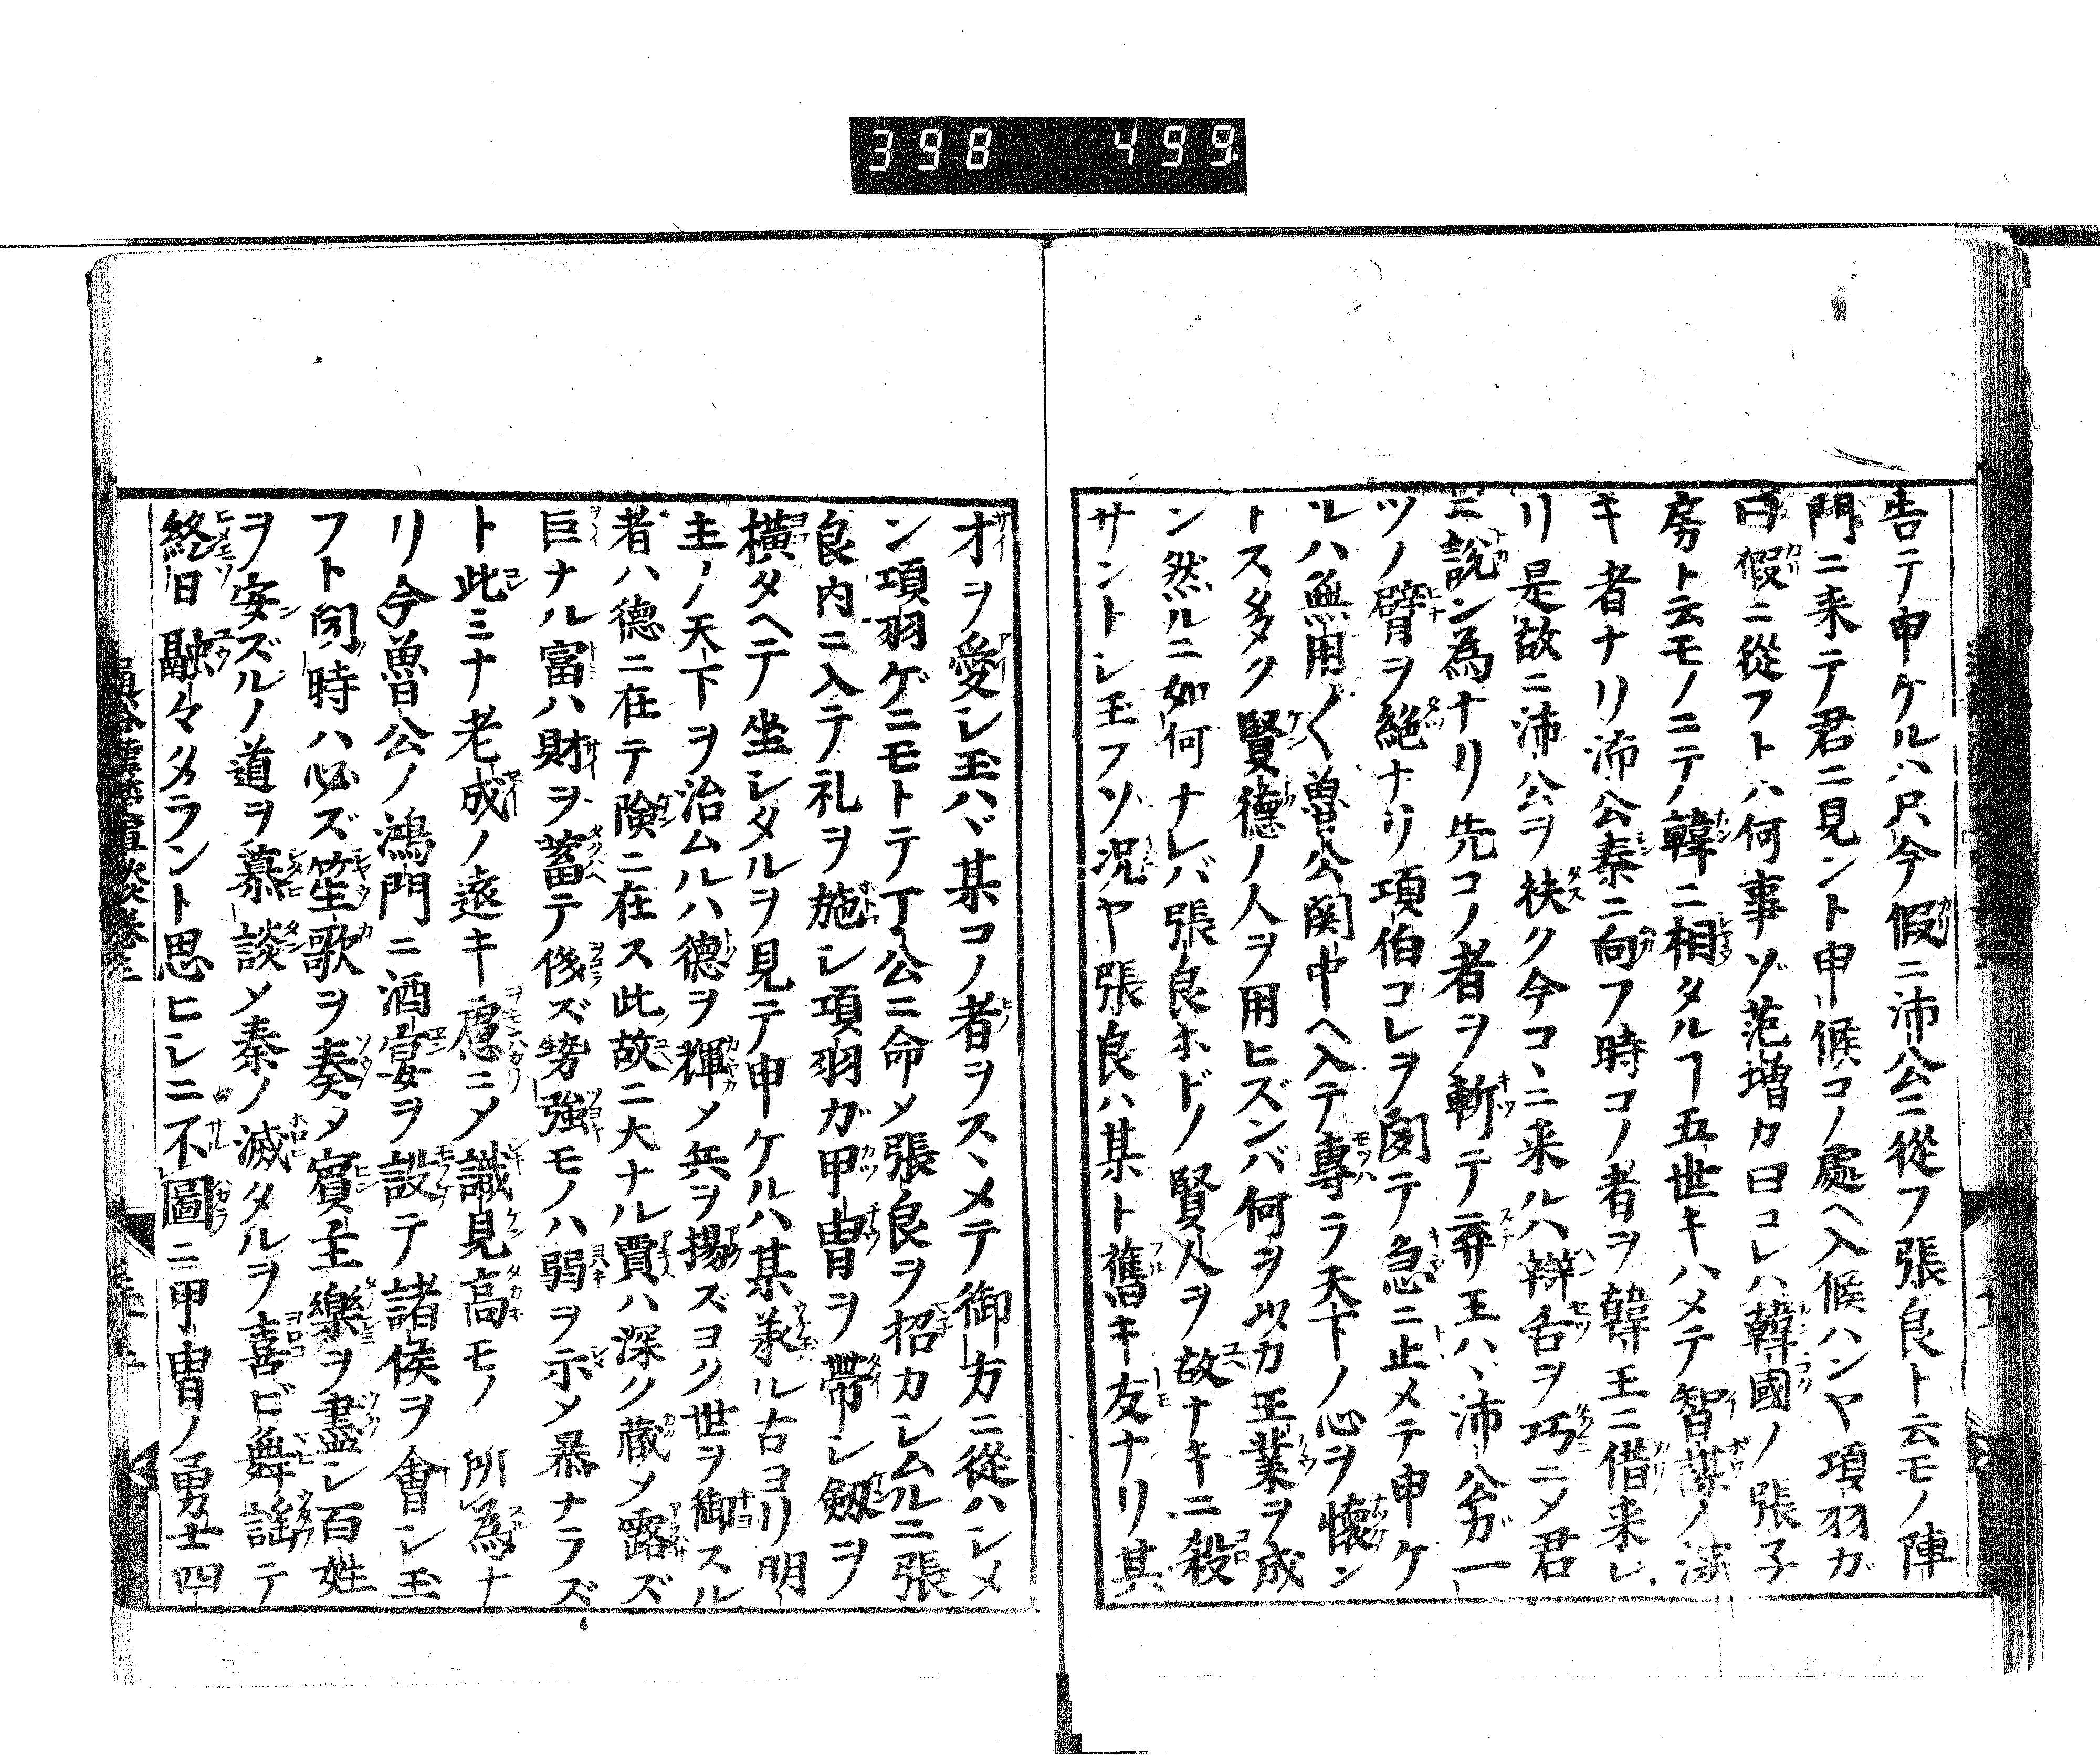 398 499
告テ申ケルハ只今假ニ沛公ニ從フ張良ト云モノ陣
門ニ来テ君ニ見ント申候コノ處ヘ入候ハンヤ項羽ガ
曰假ニ從フトハ何事ゾ范増カ曰コレハ韓國ノ張子
房ト云モノニテ韓ニ相タルヿ五世キハメテ智謀ノ深
キ者ナリ沛公秦ニ向フ時コノ者ヲ韓王ニ借来レ
リ是故ニ沛公ヲ扶ク今コヽニ来ルハ辯舌ヲ巧ニメ君
ニ説ン為ナリ先コノ者ヲ斬テ弃王ハヽ沛公ガ一
ツノ臂ヲ絶ナリ項伯コレヲ聞テ急ニ止メテ申ケ
ルハ無用〱魯公関中ヘ入テ專ラ天下ノ心ヲ懷ン
トスタメク賢德ノ人ヲ用ヒズンバ何ヲ以カ王業ヲ成
ン然ルニ如何ナレバ張良ホドノ賢人ヲ故ナキニ殺
サントレ玉フソ况ヤ張良ハ某ト舊キ友ナリ其
才ヲ愛レ玉ハヾ某コノ者ヲスヽメテ御方ニ從ハレメ
ン項羽ゲニモトテ丁公ニ命メ張良ヲ招カレムルニ張
良内ニ入テ礼ヲ施レ項羽ガ甲冑ヲ帶レ劔ヲ
横タヘテ坐レタルヲ見テ申ケルハ某承ル古ヨリ明
主ノ天下ヲ治ムルハ德ヲ輝メ兵ヲ揚ズヨク世ヲ御スル
者ハ德ニ在テ険ニ在ス此故ニ大ナル賈ハ深ク蔵メ露ズ
巨ナル富ハ財ヲ蓄テ侈ズ勢強モノハ弱ヲ示メ暴ナラズ
ト此ミナ老成ノ遠キ慮ニメ識見高モノ所為ナ
リ今魯公ノ鴻門ニ酒宴ヲ設テ諸侯ヲ會レ玉
フト聞時ハ必ズ笙歌ヲ奏メ賓主樂ヲ盡レ百姓
ヲ安ズルノ道ヲ慕談ソ秦ノ滅タルヲ喜ビ舞謡テ
終日融々タラント思ヒレニ不圖ニ甲冑ノ勇士四